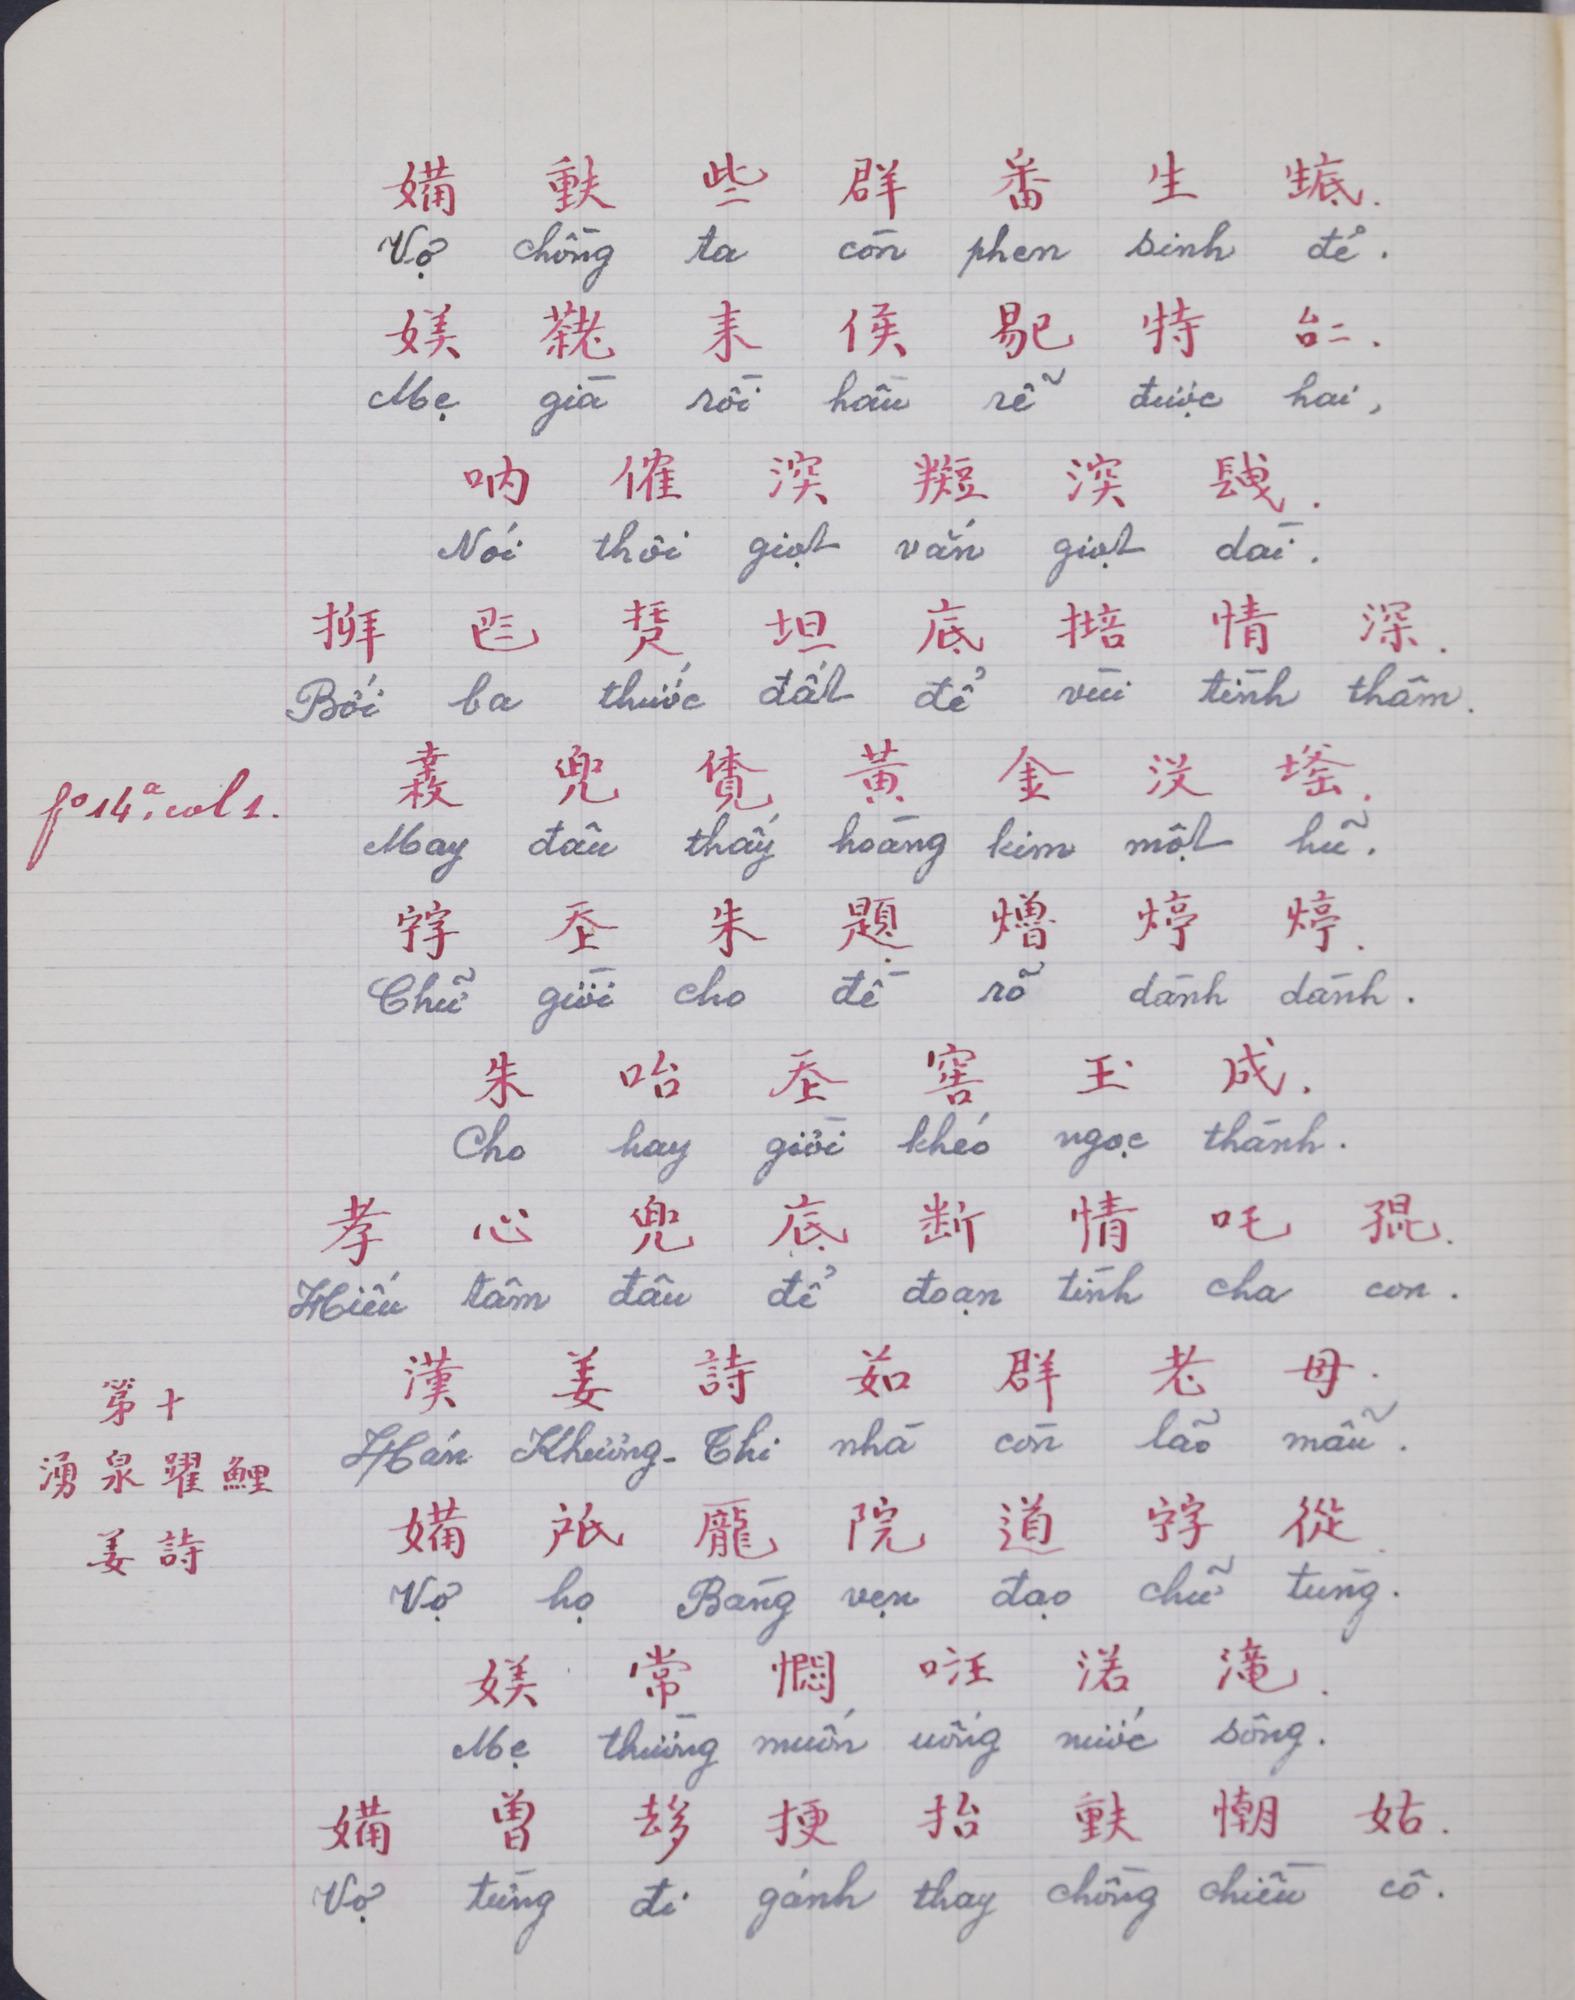 媾 𫯳 些 群 番 生 𤯰.
Vợ chồng ta còn phen sinh đẻ.
媄 𦓅 耒 侯 易 特 𠄩.
Mẹ già rồi hầu rễ được hai,
吶 催 湥 𥐇 湥 𨱽.
Nói thôi giọt vắn giọt dài.
𠀧 坦 底 掊 情 深.
Bới ba thước đất để vùi tình thâm.
f° 14ª, col 1.
兜 黃 金 沒.
May đâu thấy hoàng kim một hũ.
𡦂 𡗶 朱 題 㷝 㷝.
Chữ giời cho đề rõ dành dành.
朱 咍 𡗶 窖 玉 成.
Cho hay giời khéo ngọc thành.
孝 心 兜 底 断 情 吒 𡥵.
Hiếu tâm đâu để đoạn tình cha con.
第 十
湧 泉 躍 鯉
姜 詩
漢 姜 詩 茹 群 老 母.
Hán Khương-Thi nhà còn lão mẫu.
𡞕 龐 院 道 𡦂 從.
Vợ họ Bàng vẹn đạo chữ tùng.
媄 常 㦖 㕵 渃 滝.
Mẹ thường muốn uống nước sông.
𡞕 曾 𠫾 挭 抬 𫯳 㦆 姑.
Vợ từng đi gánh thay chồng chiều cô.